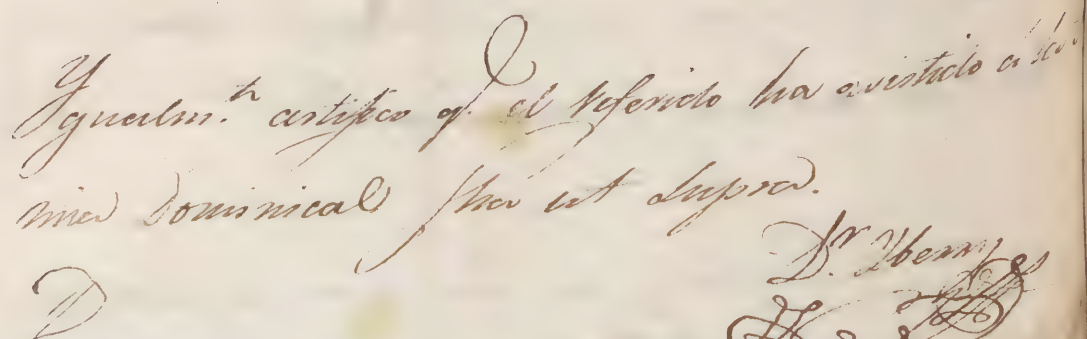 Ygualm.te certifico q.e el referido ha asistido á
Dominical fha ut supra.
D.r
D